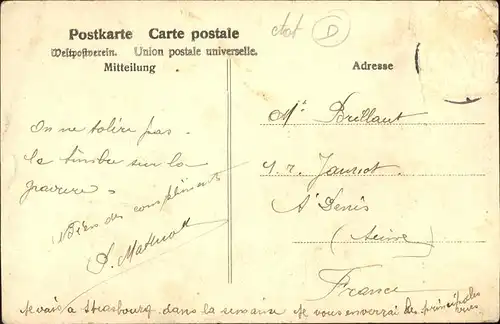 Postkarte Carte postale
Weltpostverein. Union postale universelle.
Mitteilung
Adresse
chat D
On ne tolère pas
le timbre sur la
gravure.
Bien des compliments
Mr Brillaut
4. r. Jannot
St Denis
(Seine)
France
Je vais à Strasbourg dans la semaine je vous enverrai des principales
vues